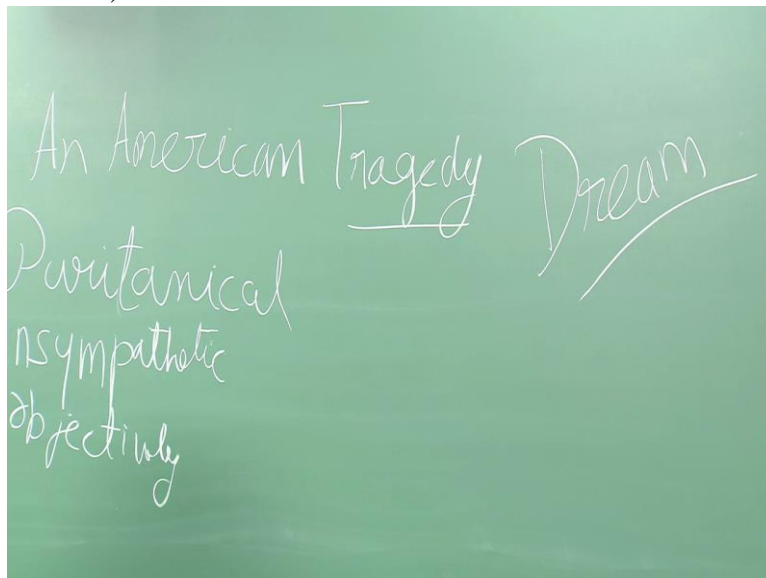 An American Tragedy Dream
Puritanical
nsympathetic
objectively